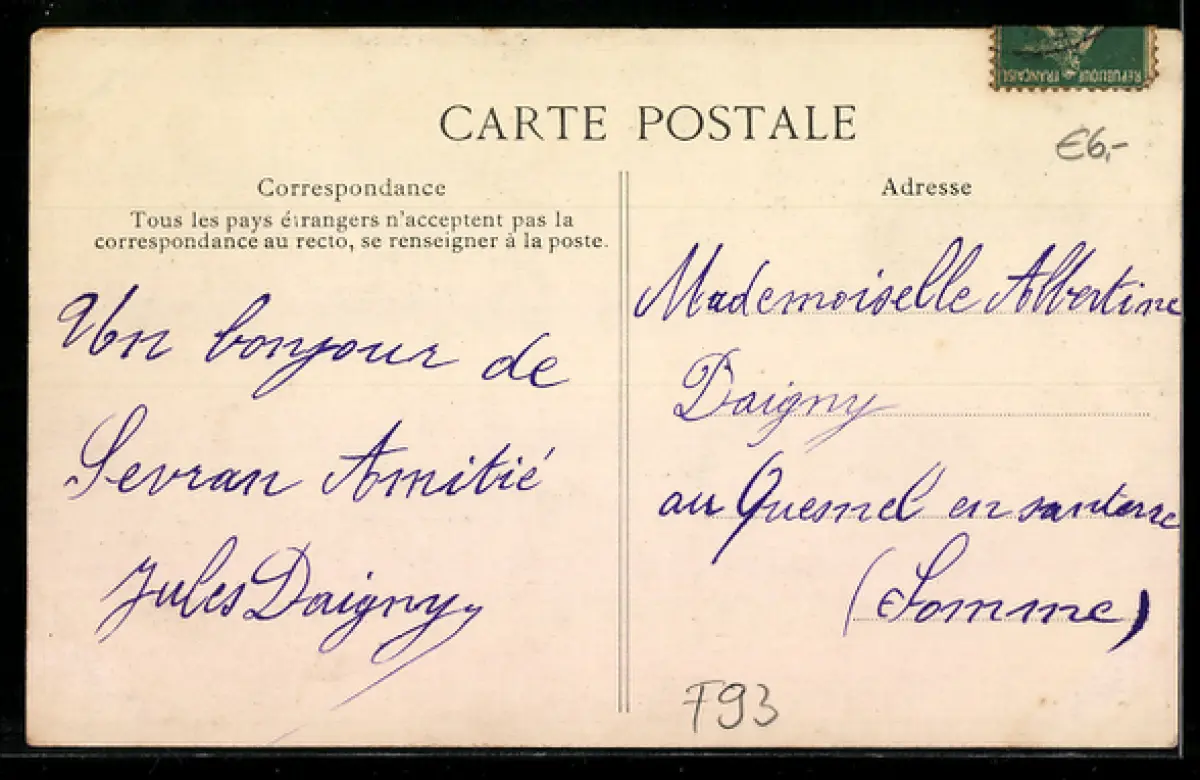 RÉPUBLIQUE FRANÇAISE
CARTE POSTALE
€6,-
Correspondance
Tous les pays étrangers n'acceptent pas la
correspondance au recto, se renseigner à la poste.
Un bonjour de
Sevran Amitié
Jules Daigny
Adresse
Mademoiselle Albertine
Daigny
au Quesnel en santerre
(Somme)
F93